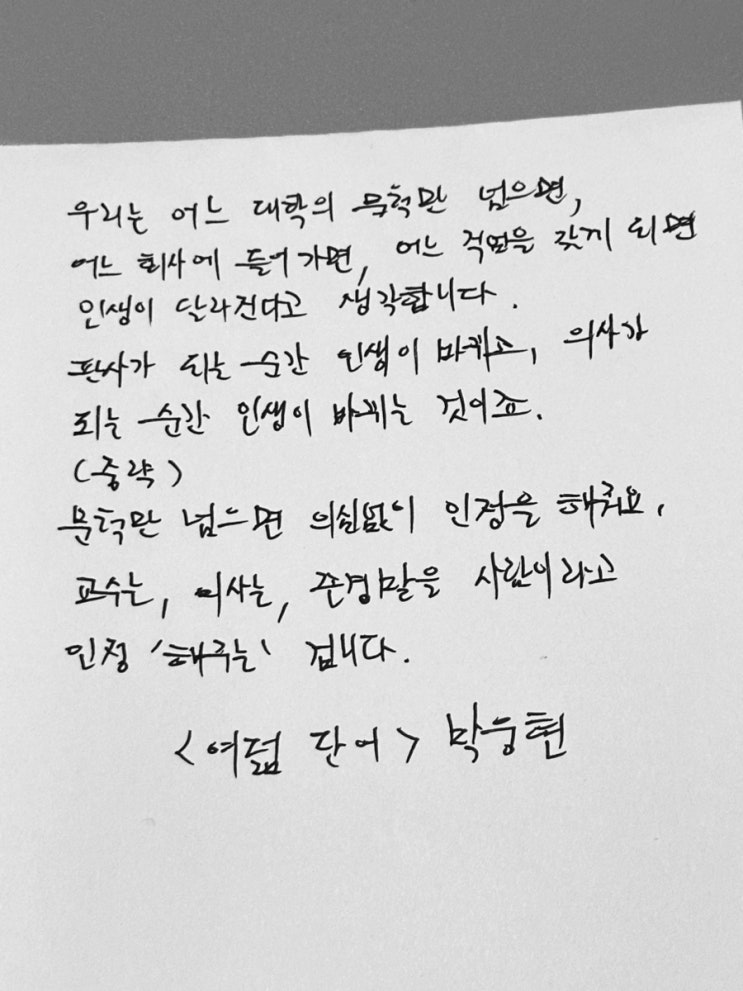 우리는 어느 대학의 문턱만 넘으면,
어느 회사에 들어가면, 어느 직업을 갖게 되면
인생이 달라진다고 생각합니다.
판사가 되는 순간 인생이 바뀌고, 의사가
되는 순간 인생이 바뀌는 것이죠.
(중략)
문턱만 넘으면 의심없이 인정을 해줘요.
교수는, 의사는, 존경받을 사람이라고
인정 '해주는' 겁니다.
<여덟 단어> 박웅현